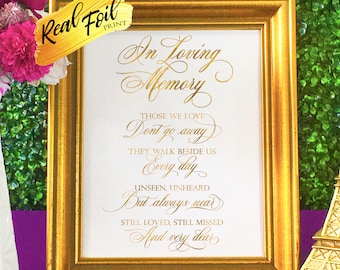 Real Foil
PRINT
In Loving
Memory
THOSE WE LOVE
Don't go away
THEY WALK BESIDE US
Every day
UNSEEN, UNHEARD
But always near
STILL LOVED, STILL MISSED
And very dear